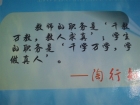 教师的职务是‘千教
万教，教人求真’；学生
的职务是‘千学万学，学
做真人’。
——陶行